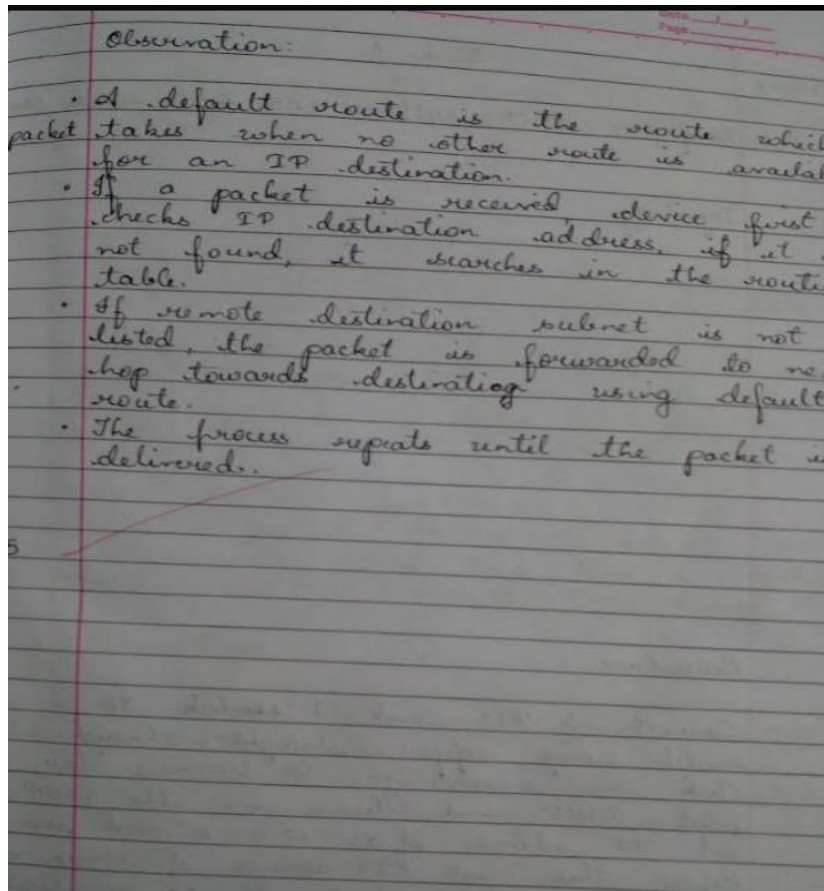 Date
Page
Observation:
• A default route is the route which
packet takes when no other route is availab
for an IP destination.
• If a packet is received, device first
checks IP destination address, if it
not found, it searches in the route
table.
• If remote destination subnet is not
listed, the packet is forwarded to ne
hop towards destination using default
route.
• The process repeats until the packet is
delivered.
5